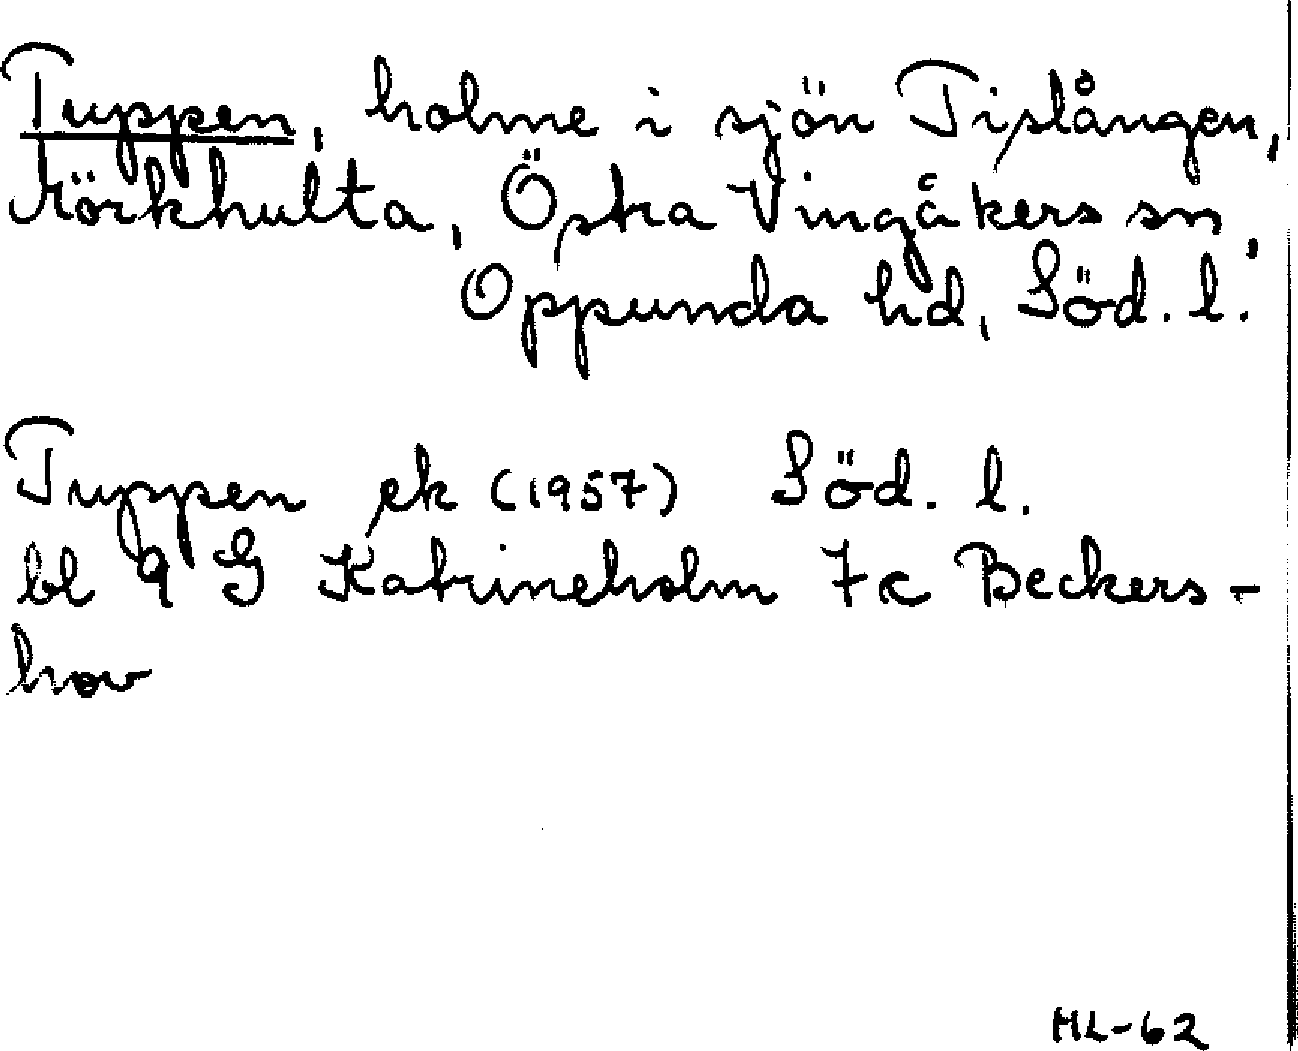 Tuppen, holme i sjön Tislången,
Mörkhulta, Östra Vingåkers sn,
Oppunda hd, Söd. l.
Tuppen ek (1957) Söd. l.
bl 9 G Katrineholm 7c Beckers-
hov
HL-62